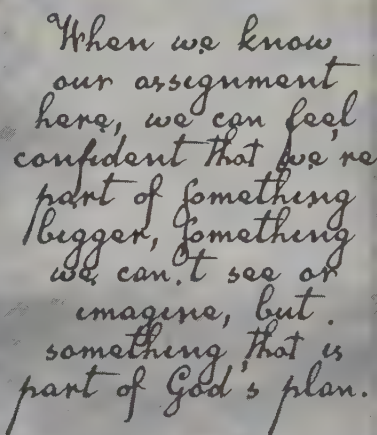 When we know
our assignment
here, we can feel
confident that we're
part of something
bigger, something
we can't see or
imagine, but
something that is
part of God's plan.